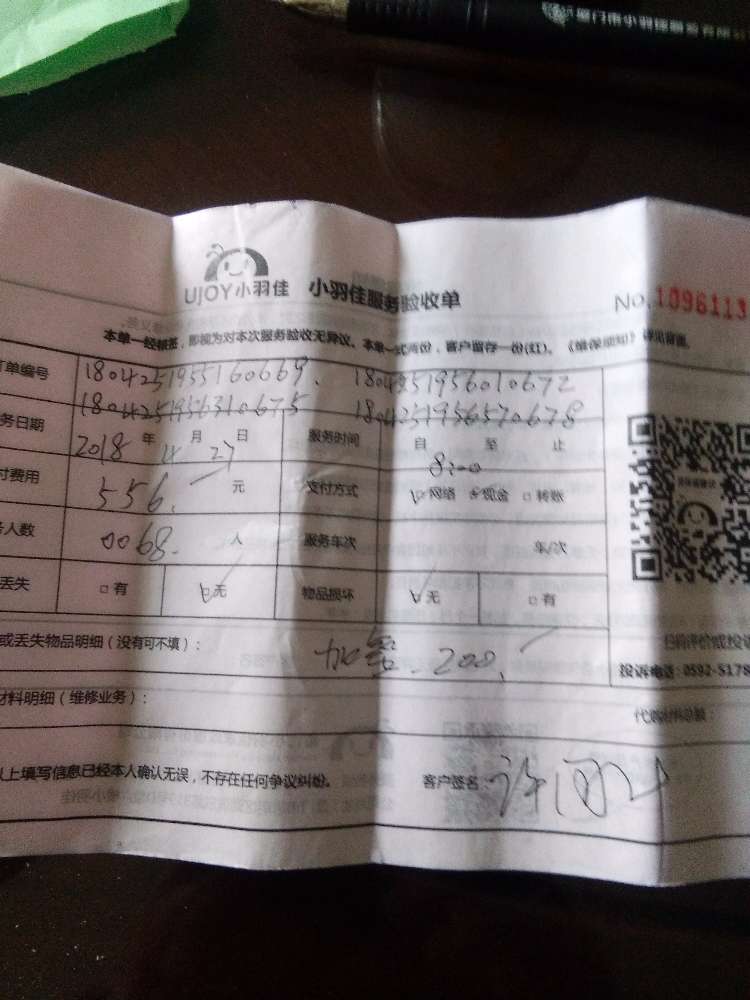 厦门市小羽佳服务有限公
UJOY小羽佳 小羽佳服务验收单 No.1096113
本单一经检签,即视为对本次服务验收无异议。本单一式两份,客户留存一份(红)。《维保须知》详见背面。
订单编号 1804251955160669. 1804251956010672
1804251956310675 1804251956570678
务日期 2018年 月27日 服务时间 自 8:00 至 止
付费用 556. 元 支付方式 网络 现金 转账
务人数 0068. 人 服务车次 车/次
丢失 有 无 物品损坏 无 有
或丢失物品明细(没有可不填): 200.
扫码评价或投诉
投诉电话:0592-5178
材料明细(维修业务): 代购材料总额:
以上填写信息已经本人确认无误,不存在任何争议纠纷。 客户签名:许